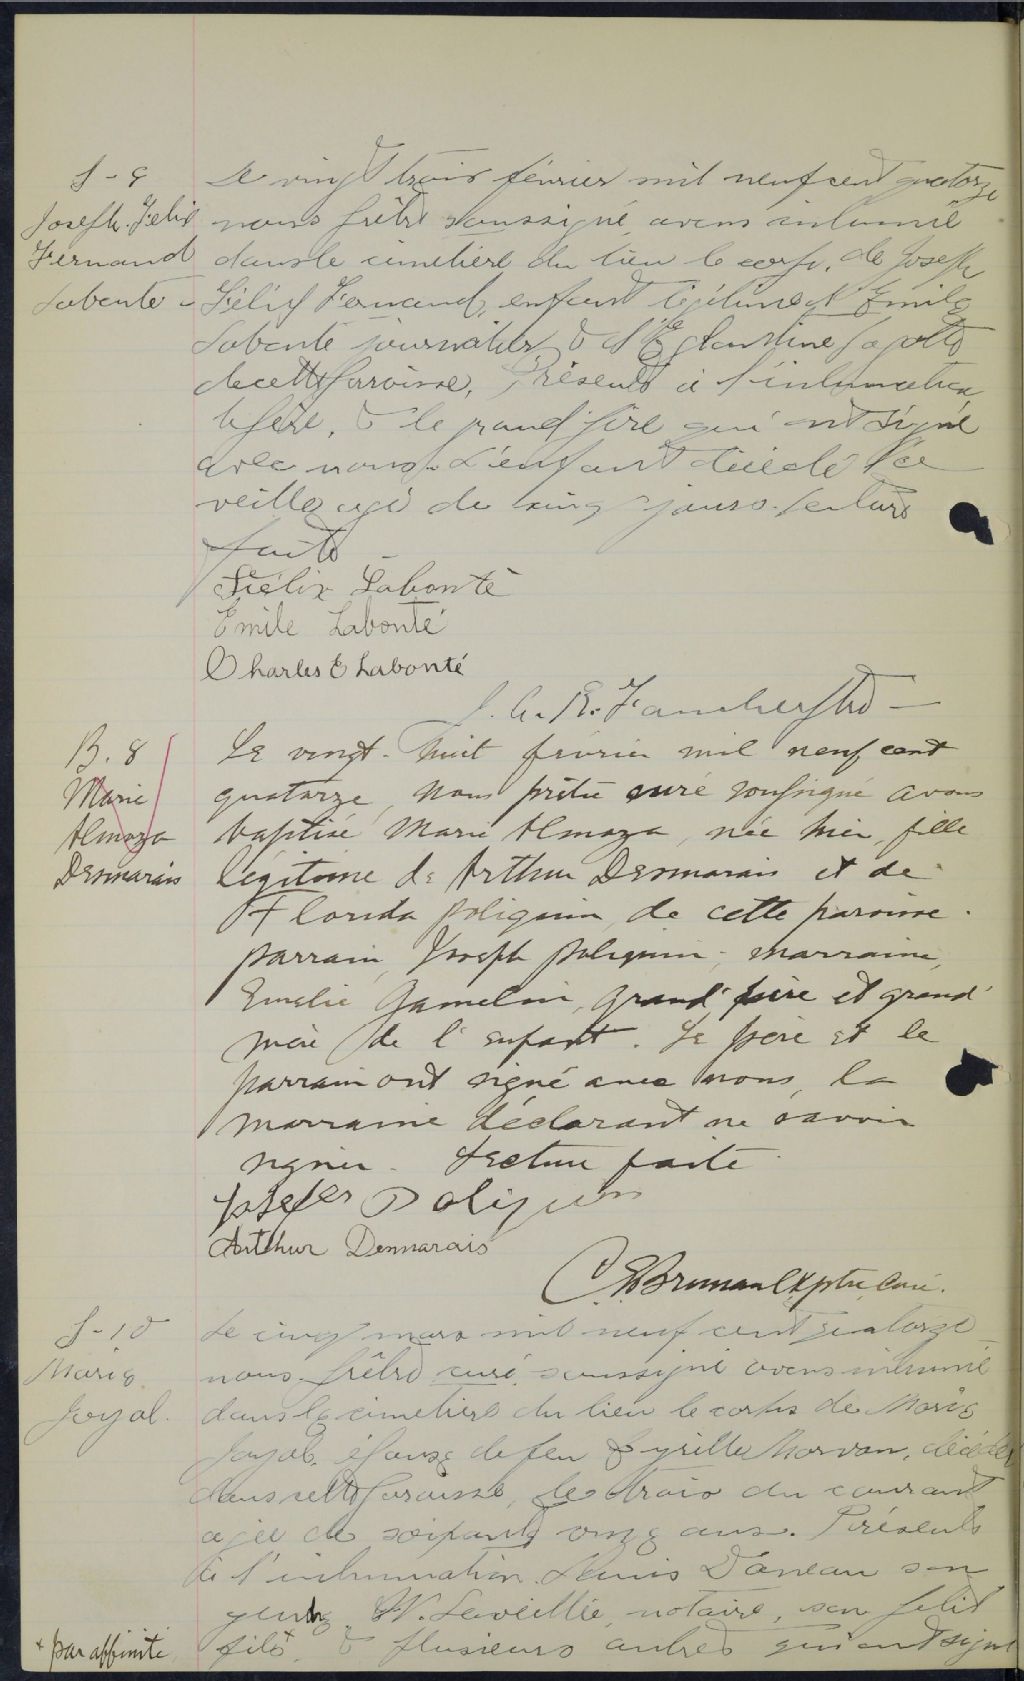 S-9
Joseph. Felix
Fernand
Labonté -
Le vingt trois février mil neuf cent quatorze
nous prêtre soussigné avons inhumé
dans le cimetière du lieu le corps, de Joseph
Félix Fernand, enfant légitime d'Emile
Labonté journalier & d'Eglantine
de cette paroisse, Présents à l'inhumation
le père, & le grand père qui ont signé
avec nous. L'enfant décédé la
veille agé de cinq jours. Lecture
faite
Félix Labonté
Emile Labonté
Charles E Labonté
J. A. R. Faucher ptre -
B. 8
Marie
Almaza
Desmarais
Le vingt-huit février mil neuf cent
quatorze, nous prêtre curé soussigné avons
baptisé Marie Almaza, née hier, fille
légitime de Arthur Desmarais et de
Florida Poliquin, de cette paroisse.
parrain, Joseph Poliquin; marraine,
Emelie Gamelin, grand'père et grand'
mère de l'enfant. Le père et le
parrain ont signé avec nous, la
marraine déclarant ne savoir
signer. Lecture faite.
Josefer Poliquin
Arthur Desmarais
ptre curé.
S-10
Marie
Joyal.
Le cinq mars mil neuf cent quatorze
nous prêtre curé soussigné avons inhumé
dans le cimetière du lieu le corps de Marie
Joyal, épouse de feu Cyrille Morvan, décédée
dans cette paroisse, le trois du courant
agée de soixante onze ans. Présents
à l'inhumation Louis Daneau son
gendre, W. Leveillée, notaire, son petit
fils+ & plusieurs autres qui ont signé
+ par affinité